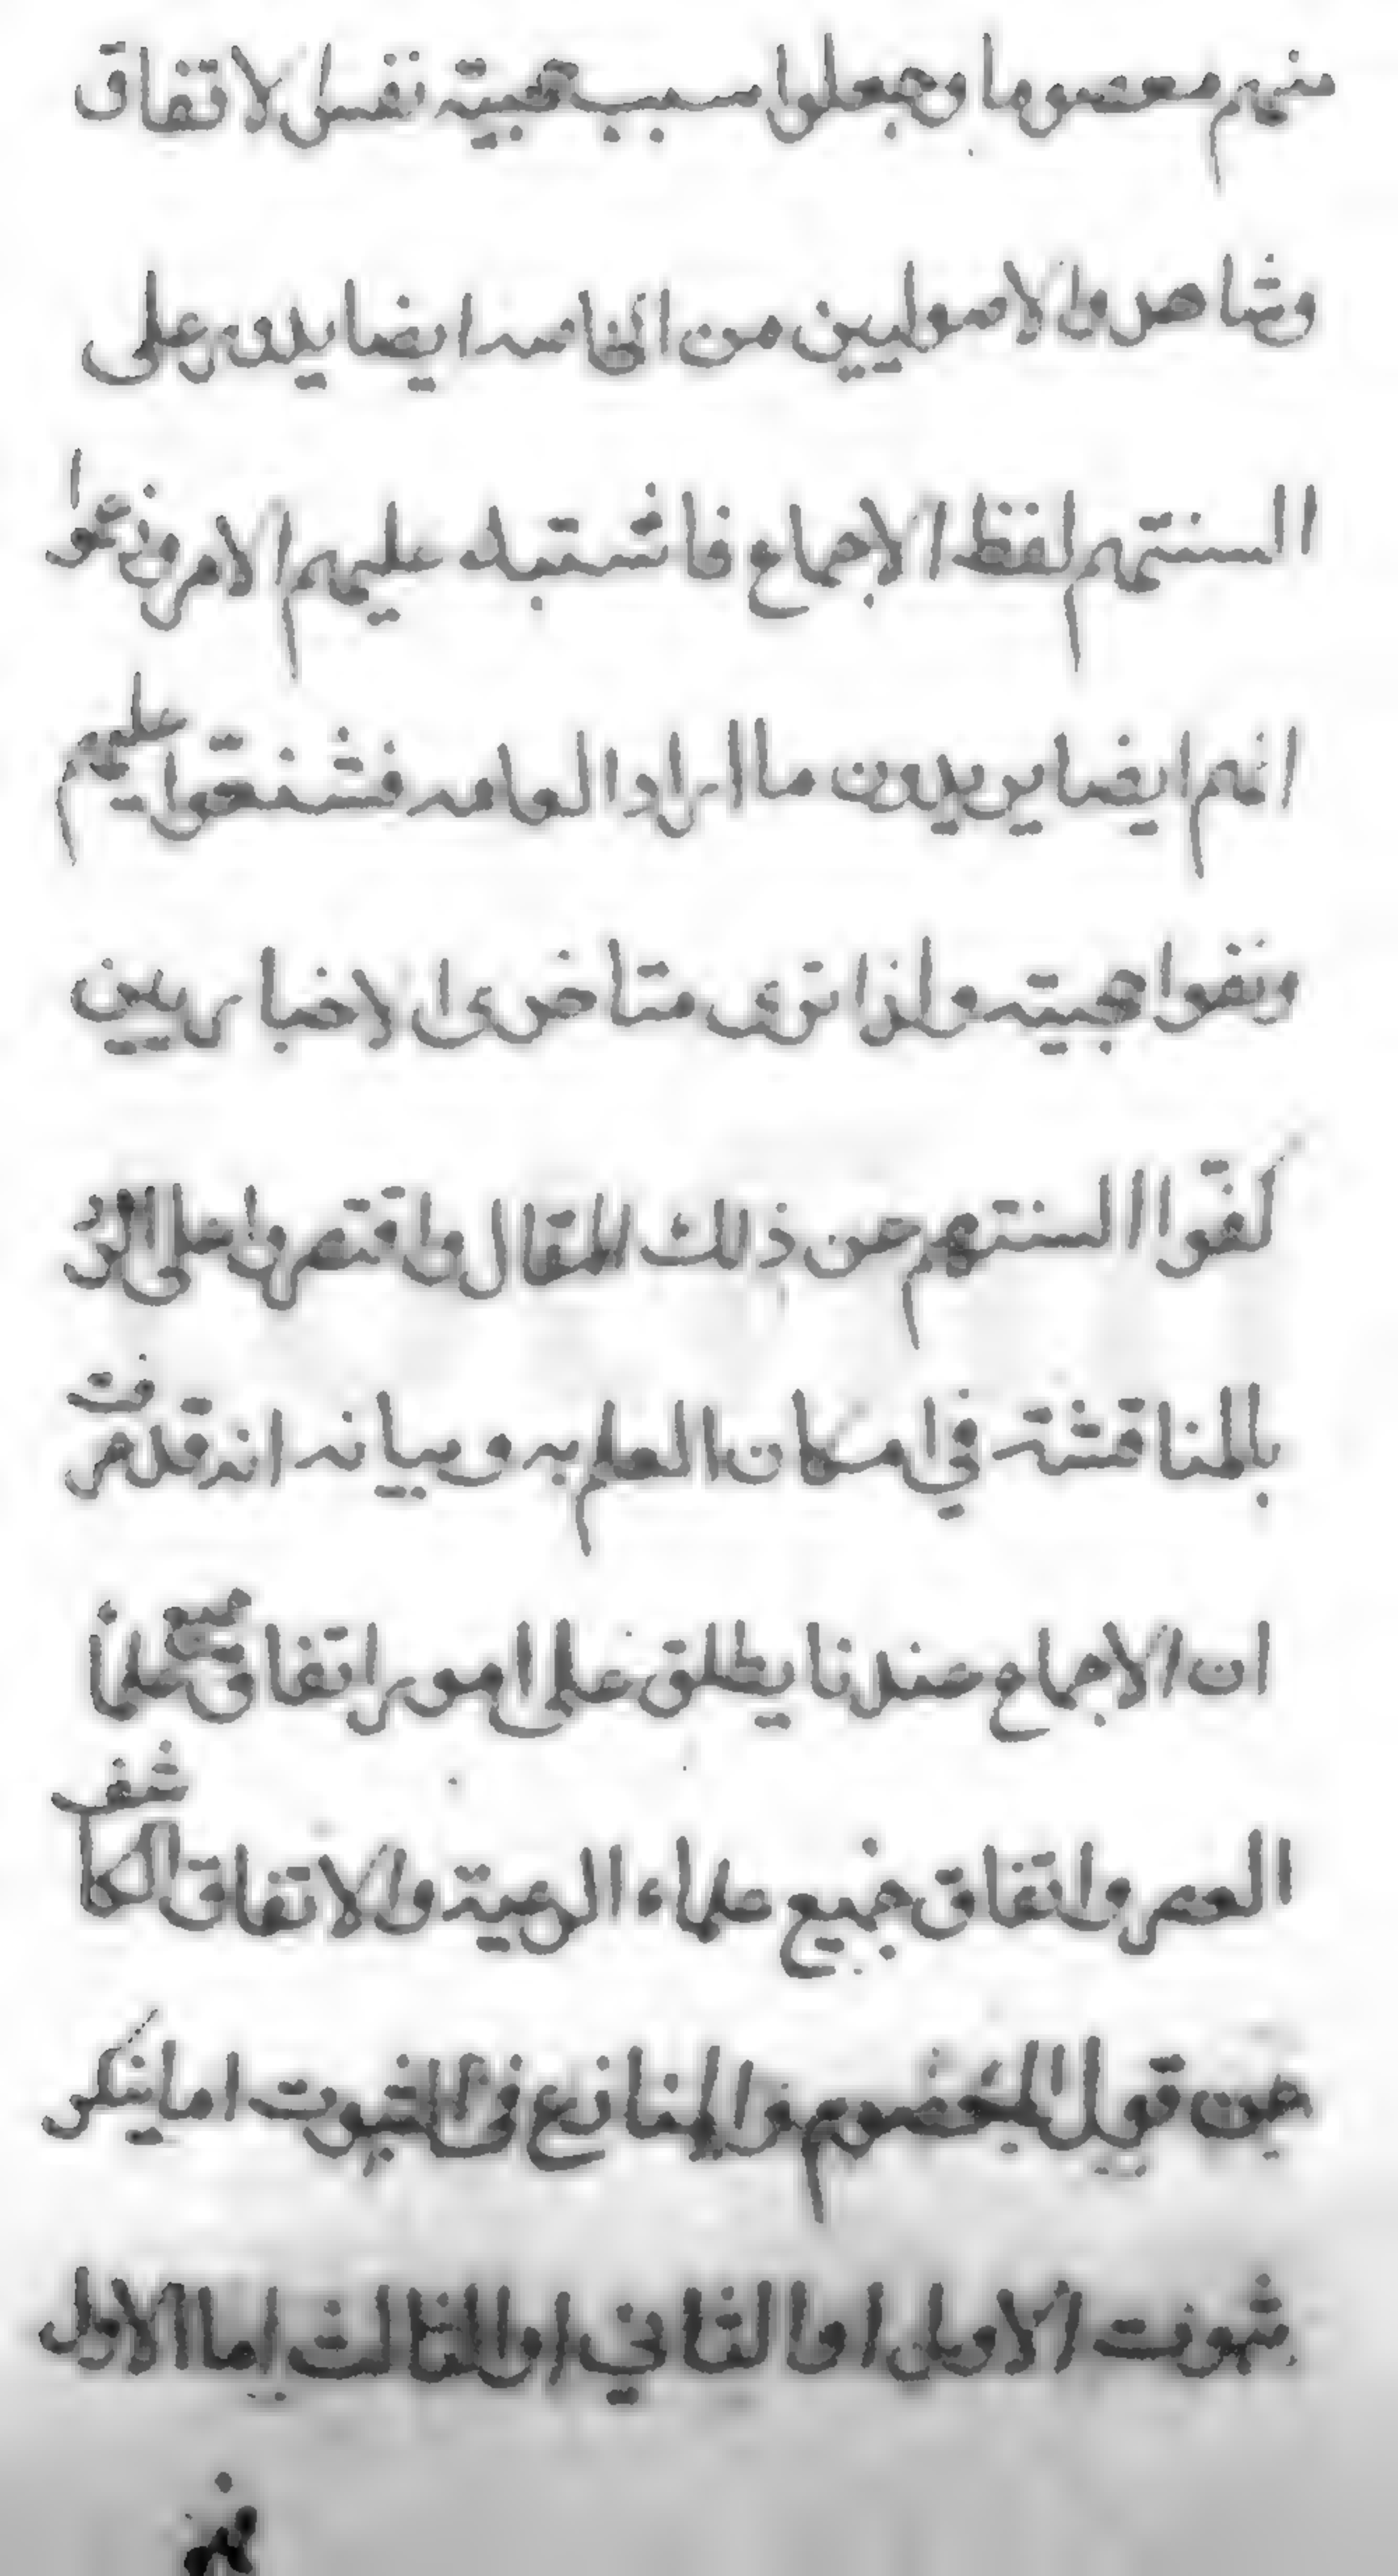 منهم معصوما وجعلوا سبب حجيته نفس الاتفاق
وشاهدوا الاصوليين من الخاصه ايضا يدورعلى
السنتهم لفظ الاجماع فاشتبه عليهم الامر وزعموا
انهم ايضا يريدون ما اراد العامه فشنعوا عليهم
ونفوا حجيته ولذا ترى متاخرى الاخباريين
كفوا السنتهم عن ذلك المقال واقتصروا على
بالمناقشة في امكان العلم به وبيانه انه قد عرفت
ان الاجماع عندنا يطلق على امور اتفاق جميع علماء
العصر واتفاق جميع علماء الرعية والاتفاق الكاشف
عن قول المعصوم فالمنازع فى الثبوت اما ينكر
ثبوت الاول او الثاني او الثالث اما الاول